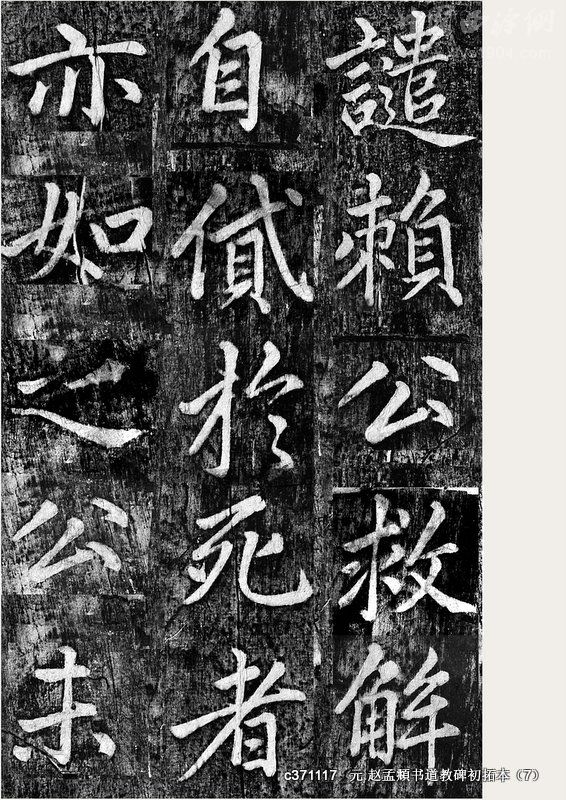 譴賴公救解
自貸於死者
亦如之公未
c371117 元.赵孟頫书道教碑初拓本（7）